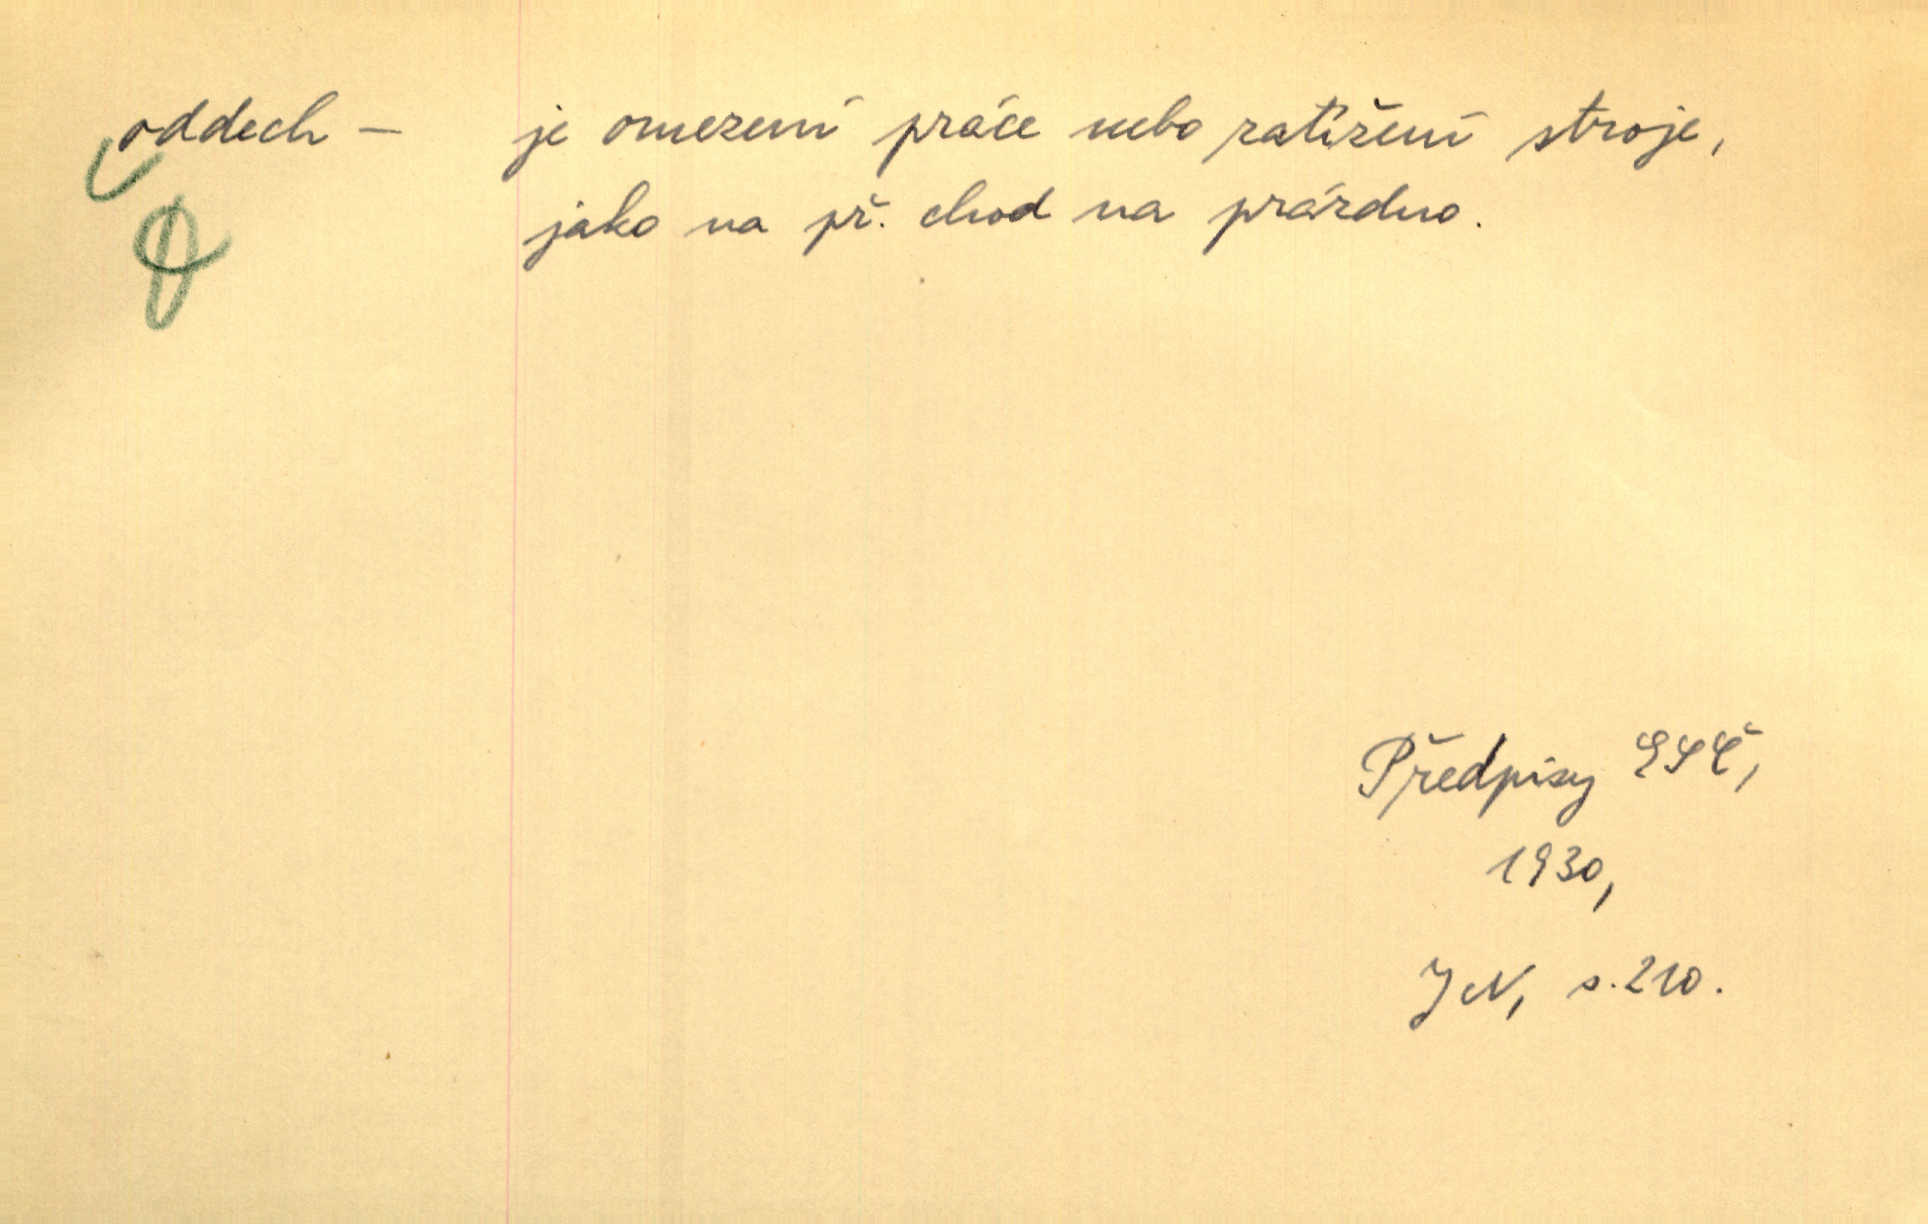 oddech — je omezení práce nebo zatížení stroje,
jako na př. chod na prázdno.
Předpisy ESČ,
1930,
JN, s. 210.